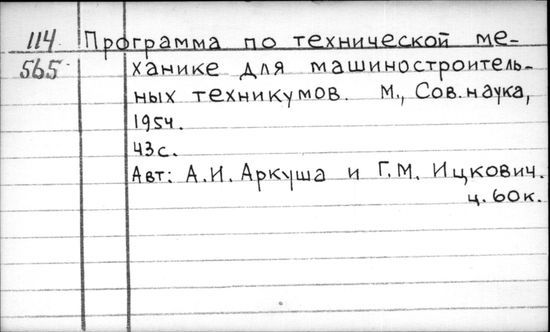 114 Программа по технической ме-
565 ханике для машиностроитель-
ных техникумов. М., Сов. наука,
1954.
43 с.
Авт: А.И. Аркуша и Г.М. Ицкович.
ц. 60 к.